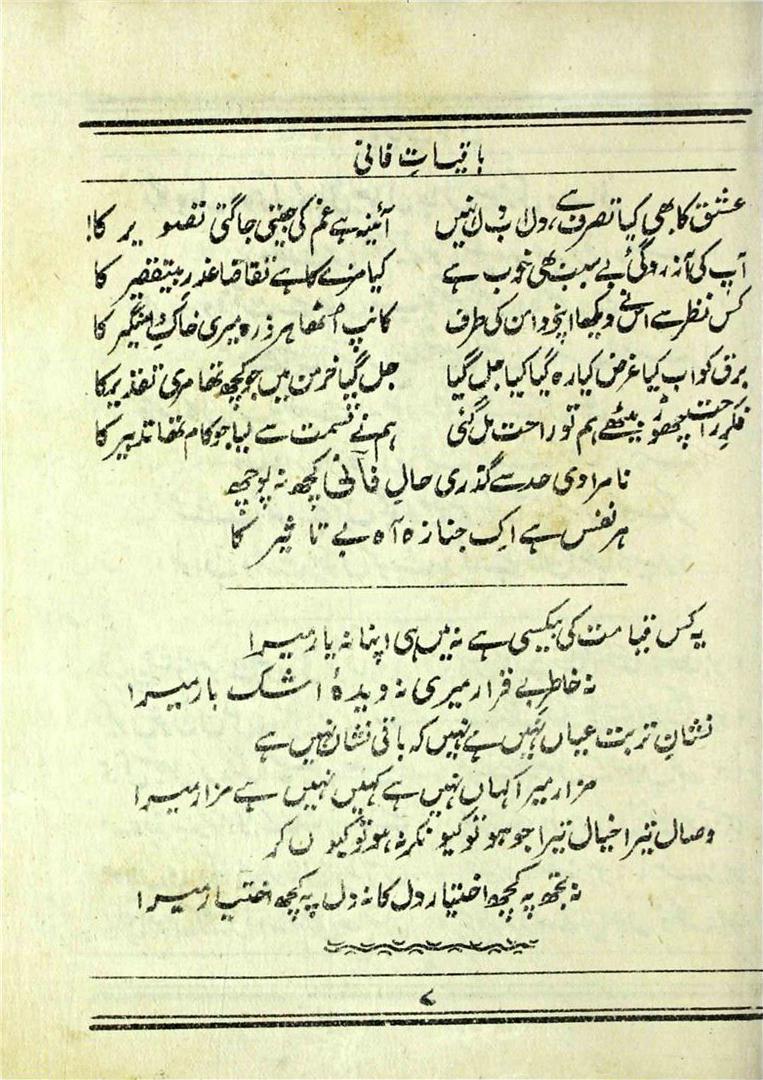 باقیاتِ فانی
عشق کا بھی کیا تصرف ہے، دل اب دل نہیں آئینہ ہے غم کی جیتی جاگتی تصویر کا!
آپ کی آزردگیٔ بے سبب بھی خوب ہے کیا مزے کا ہے تقاضا عذرِ بے تقصیر کا
کس نظر سے اسنے دیکھا اپنے دامن کی طرف کانپ اُٹھا ہر ذرہ میری خاکِ دامنگیر کا
برق کو اب کیا غرض کیا رہ گیا کیا جل گیا جل گیا خرمن میں جو کچھ تھا مری تقدیر کا
فکرِ راحت چھوڑ بیٹھے ہم تو راحت مل گئی ہم نے قسمت سے لیا جو کام تھا تدبیر کا
نامرادی حد سے گذری حالِ فانی کچھ نہ پوچھ
ہر نفس ہے اک جنازہ آہ بے تاثیر کا
یہ کس قیامت کی بیکسی ہے نہ میں ہی اپنا نہ یار میرا
نہ خاطرِ بے قرار میری نہ دیدۂ اشک بار میرا
نشانِ تربت عیاں نہیں ہے نہیں کہ باقی نشاں نہیں ہے
مزار میرا کہاں نہیں ہے کہیں نہیں ہے مزار میرا
وصال تیرا خیال تیرا جو ہو تو کیونکر نہ ہو تو کیوں کر
نہ تجھ پہ کچھ اختیار دل کا نہ دل پہ کچھ اختیار میرا
۷